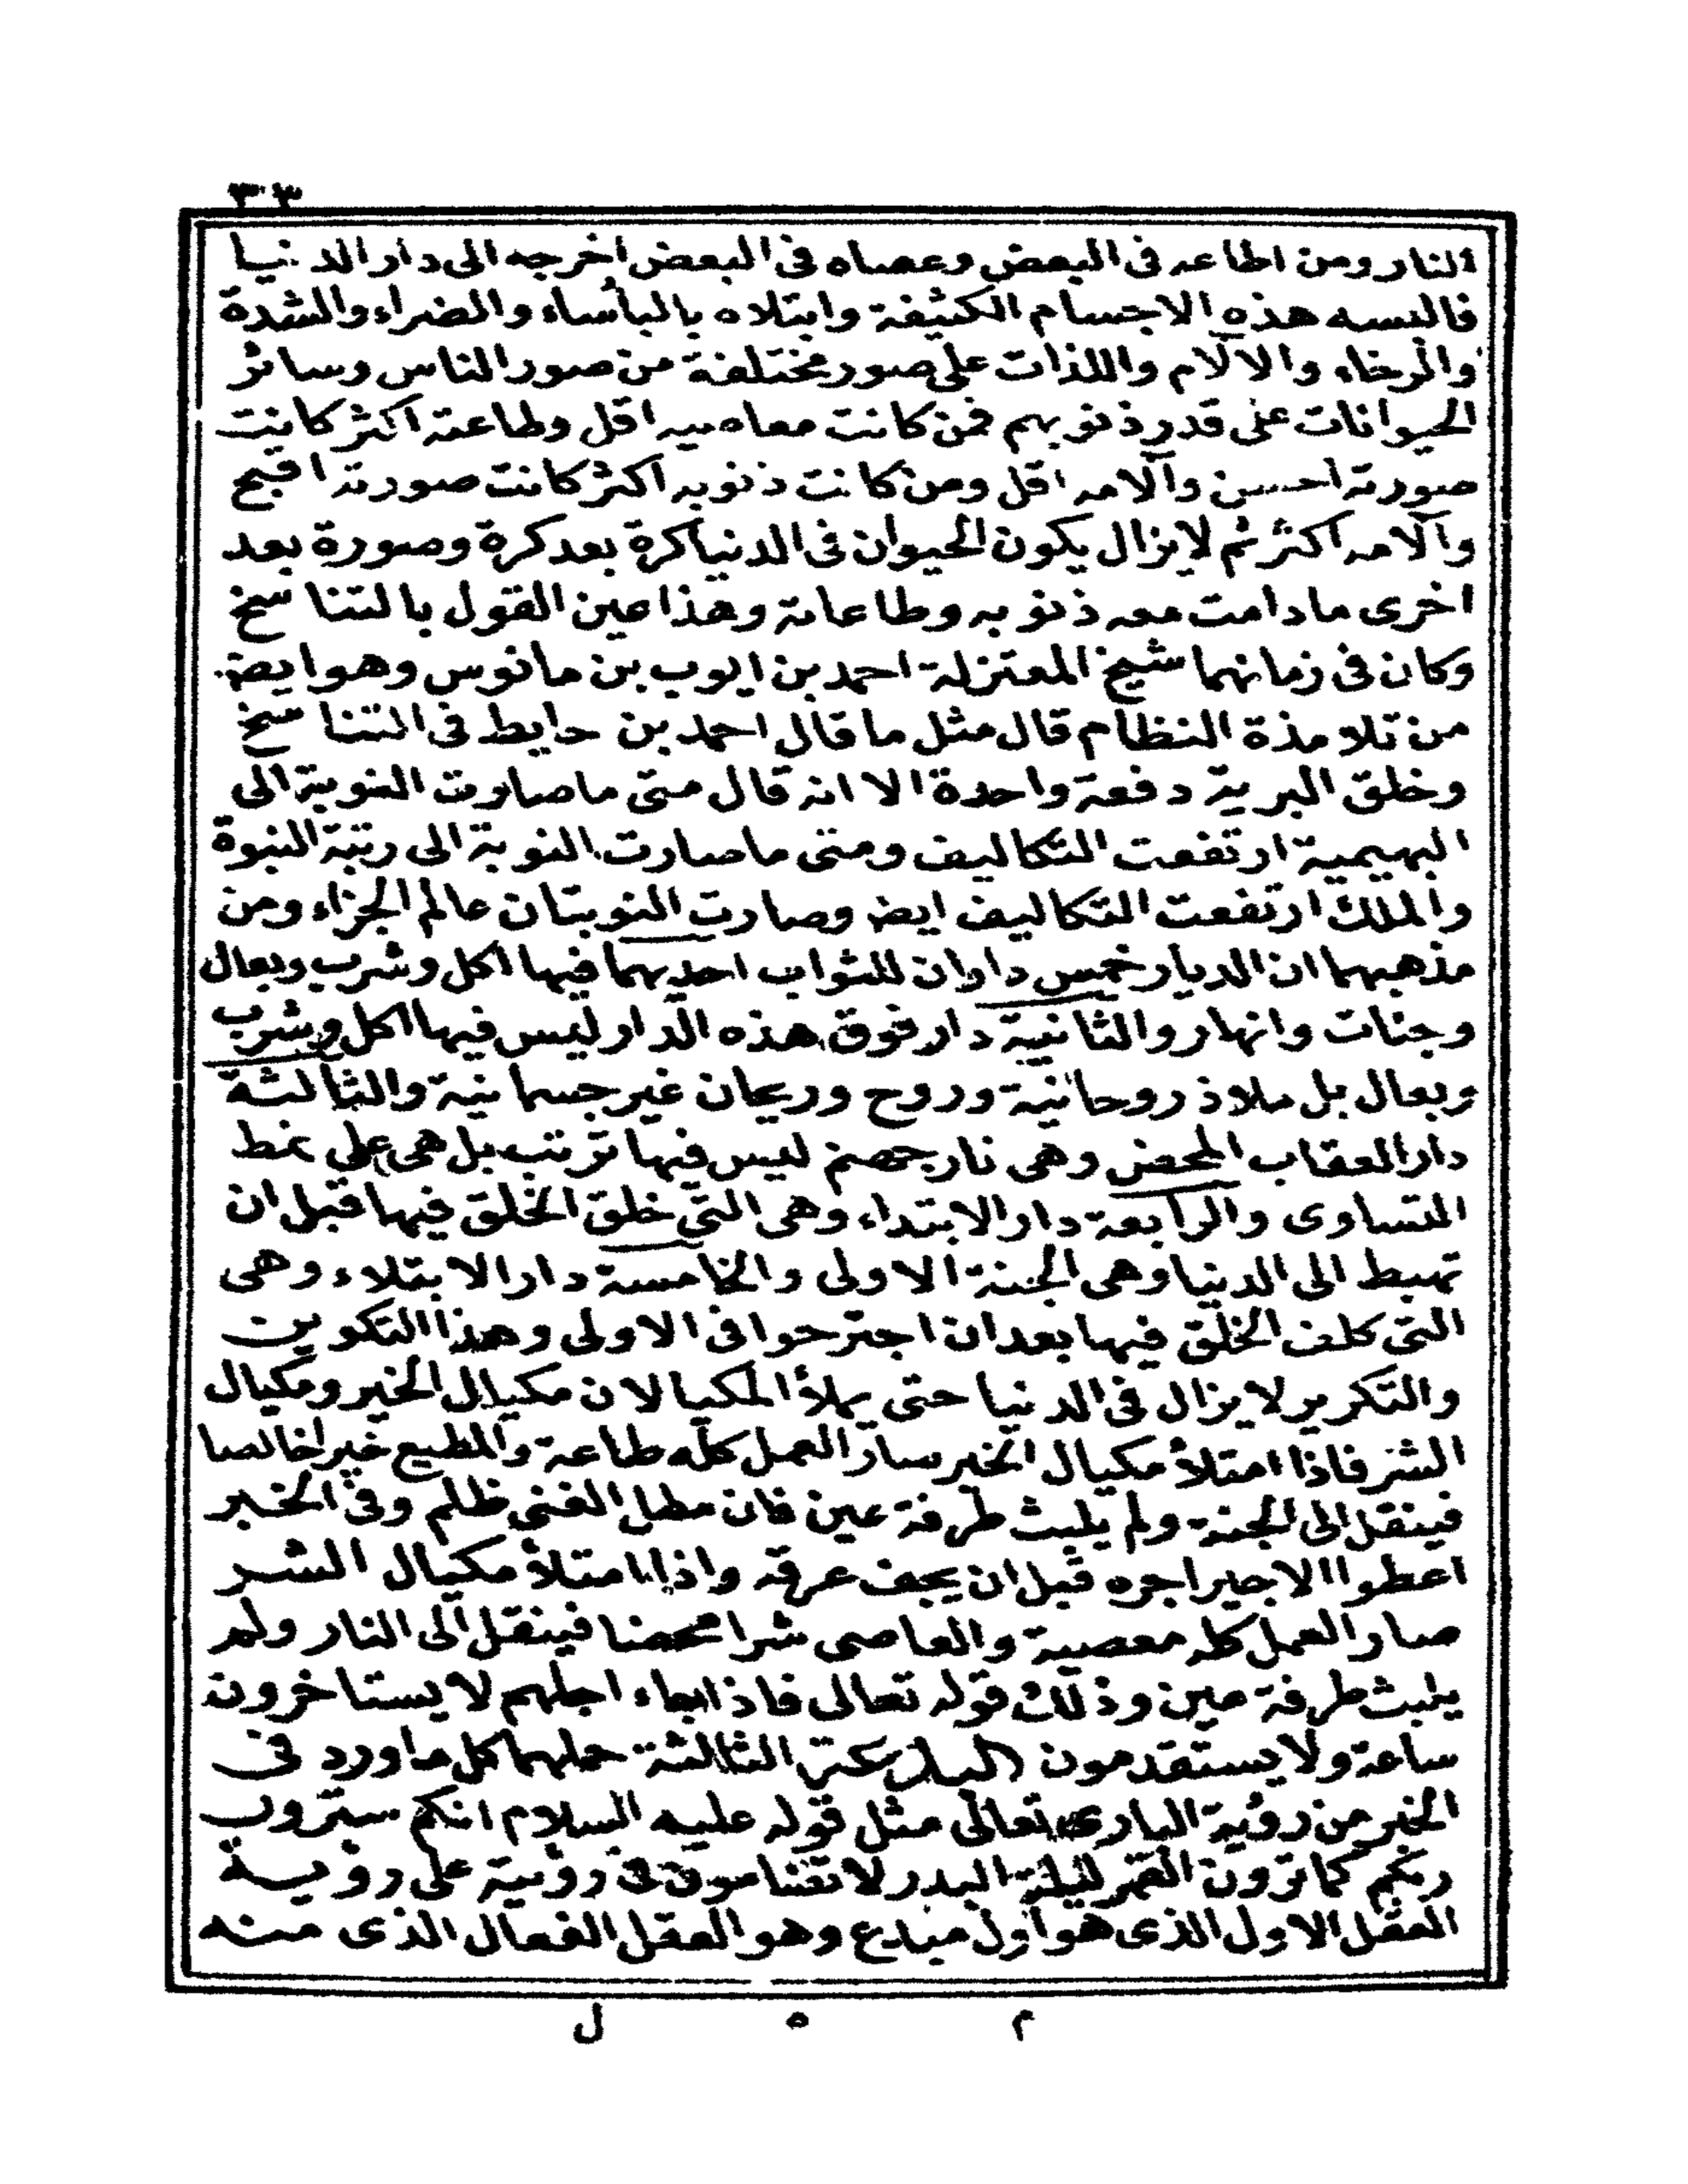 ٣٣
النار ومن اطاعه فى البعض وعصاه فى البعض اخرجه الى دار الدنيا
فالبسه هذه الاجسام الكثيفة وابتلاه بالبأساء والضراء والشدة
والرخاء والآلام واللذات على صور مختلفة من صور الناس وسائر
الحيوانات على قدر ذنوبهم فمن كانت معاصيه اقل وطاعته اكثر كانت
صورته احسن وآلامه اقل ومن كانت ذنوبه اكثر كانت صورته اقبح
وآلامه اكثر ثم لا يزال يكون الحيوان فى الدنيا كرة بعد كرة وصورة بعد
اخرى ما دامت معه ذنوبه وطاعاته وهذا عين القول بالتناسخ
وكان فى زمانهما شيخ المعتزلة احمد بن ايوب بن مانوس وهو ايضا
من تلامذة النظام قال مثل ما قال احمد بن حايط فى التناسخ
وخلق البرية دفعة واحدة الا انه قال متى ما صارت النوبة الى
البهيمية ارتفعت التكاليف ومتى ما صارت النوبة الى رتبة النبوة
والملك ارتفعت التكاليف ايض وصارت النوبتان عالم الجزاء ومن
مذهبهما ان الديار خمس داران للثواب احديهما فيها اكل وشرب وبعال
وجنات وانهار والثانية دار فوق هذه الدار ليس فيها اكل وشرب
وبعال بل ملاذ روحانية وروح وريحان غير جسمانية والثالثة
دار العقاب المحض وهى نار جهنم ليس فيها ترتب بل هى على نمط
التساوى والرابعة دار الابتداء وهى التى خلق الخلق فيها قبل ان
تهبط الى الدنيا وهى الجنة الاولى والخامسة دار الابتلاء وهى
التى كلف الخلق فيها بعد ان اجترحوا فى الاولى وهذا التكوين
والتكرير لا يزال فى الدنيا حتى يملأ المكيالان مكيال الخير ومكيال
الشر فاذا امتلأ مكيال الخير سار العمل كله طاعة والمطيع خيرا خالصا
فينقل الى الجنة ولم يلبث طرفة عين فان مطل الغنى ظلم وفى الخبر
اعطوا الاجير اجره قبل ان يجف عرقه واذا امتلأ مكيال الشر
صار العمل كله معصية والعاصى شرا محضا فينقل الى النار ولم
يلبث طرفة عين وذلك قوله تعالى فاذا جاء اجلهم لا يستاخرون
ساعة ولا يستقدمون البدعة الثالثة حملهما كل ما ورد فى
الخبر من رؤية البارى تعالى مثل قوله عليه السلام انكم سترون
ربكم كما ترون القمر ليلة البدر لا تضامون فى رؤيته على رؤية
العقل الاول الذى هو اول مبدع وهو العقل الفعال الذى منه
م ه ل